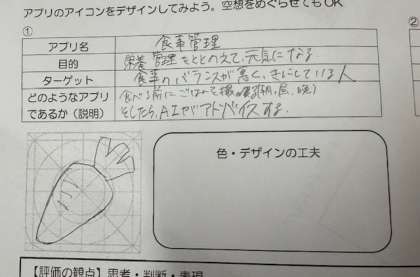 アプリのアイコンをデザインしてみよう。空想をめぐらせてもOK
①
②
アプリ名 食事管理
目的 栄養管理をととのえて、元気になる
ターゲット 食事のバランスが悪く、きにしている人
どのようなアプリ 食べる前にごはんを撮影(朝,昼,晩)
であるか(説明) そしたら、AIがアドバイスする。
色・デザインの工夫
【評価の観点】思考・判断・表現